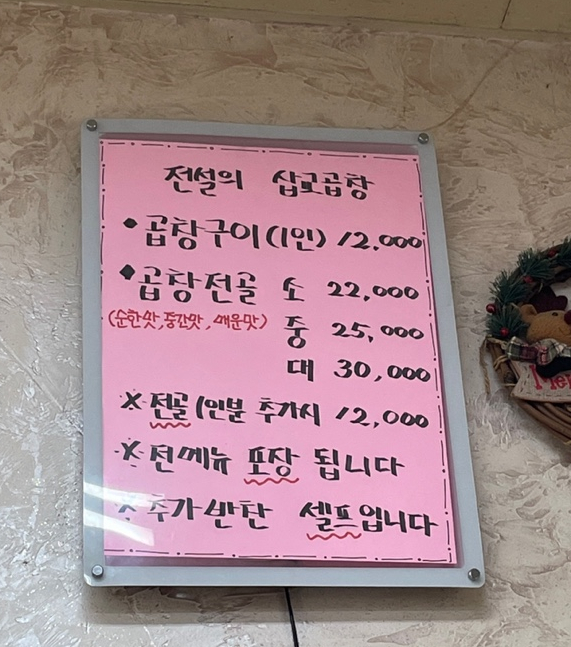 전설의 삽교곱창
• 곱창구이(1인) 12,000
• 곱창전골 소 22,000
(순한맛, 중간맛, 매운맛) 중 25,000
대 30,000
※ 전골 1인분 추가시 12,000
※ 전메뉴 포장 됩니다
※ 추가반찬 셀프입니다